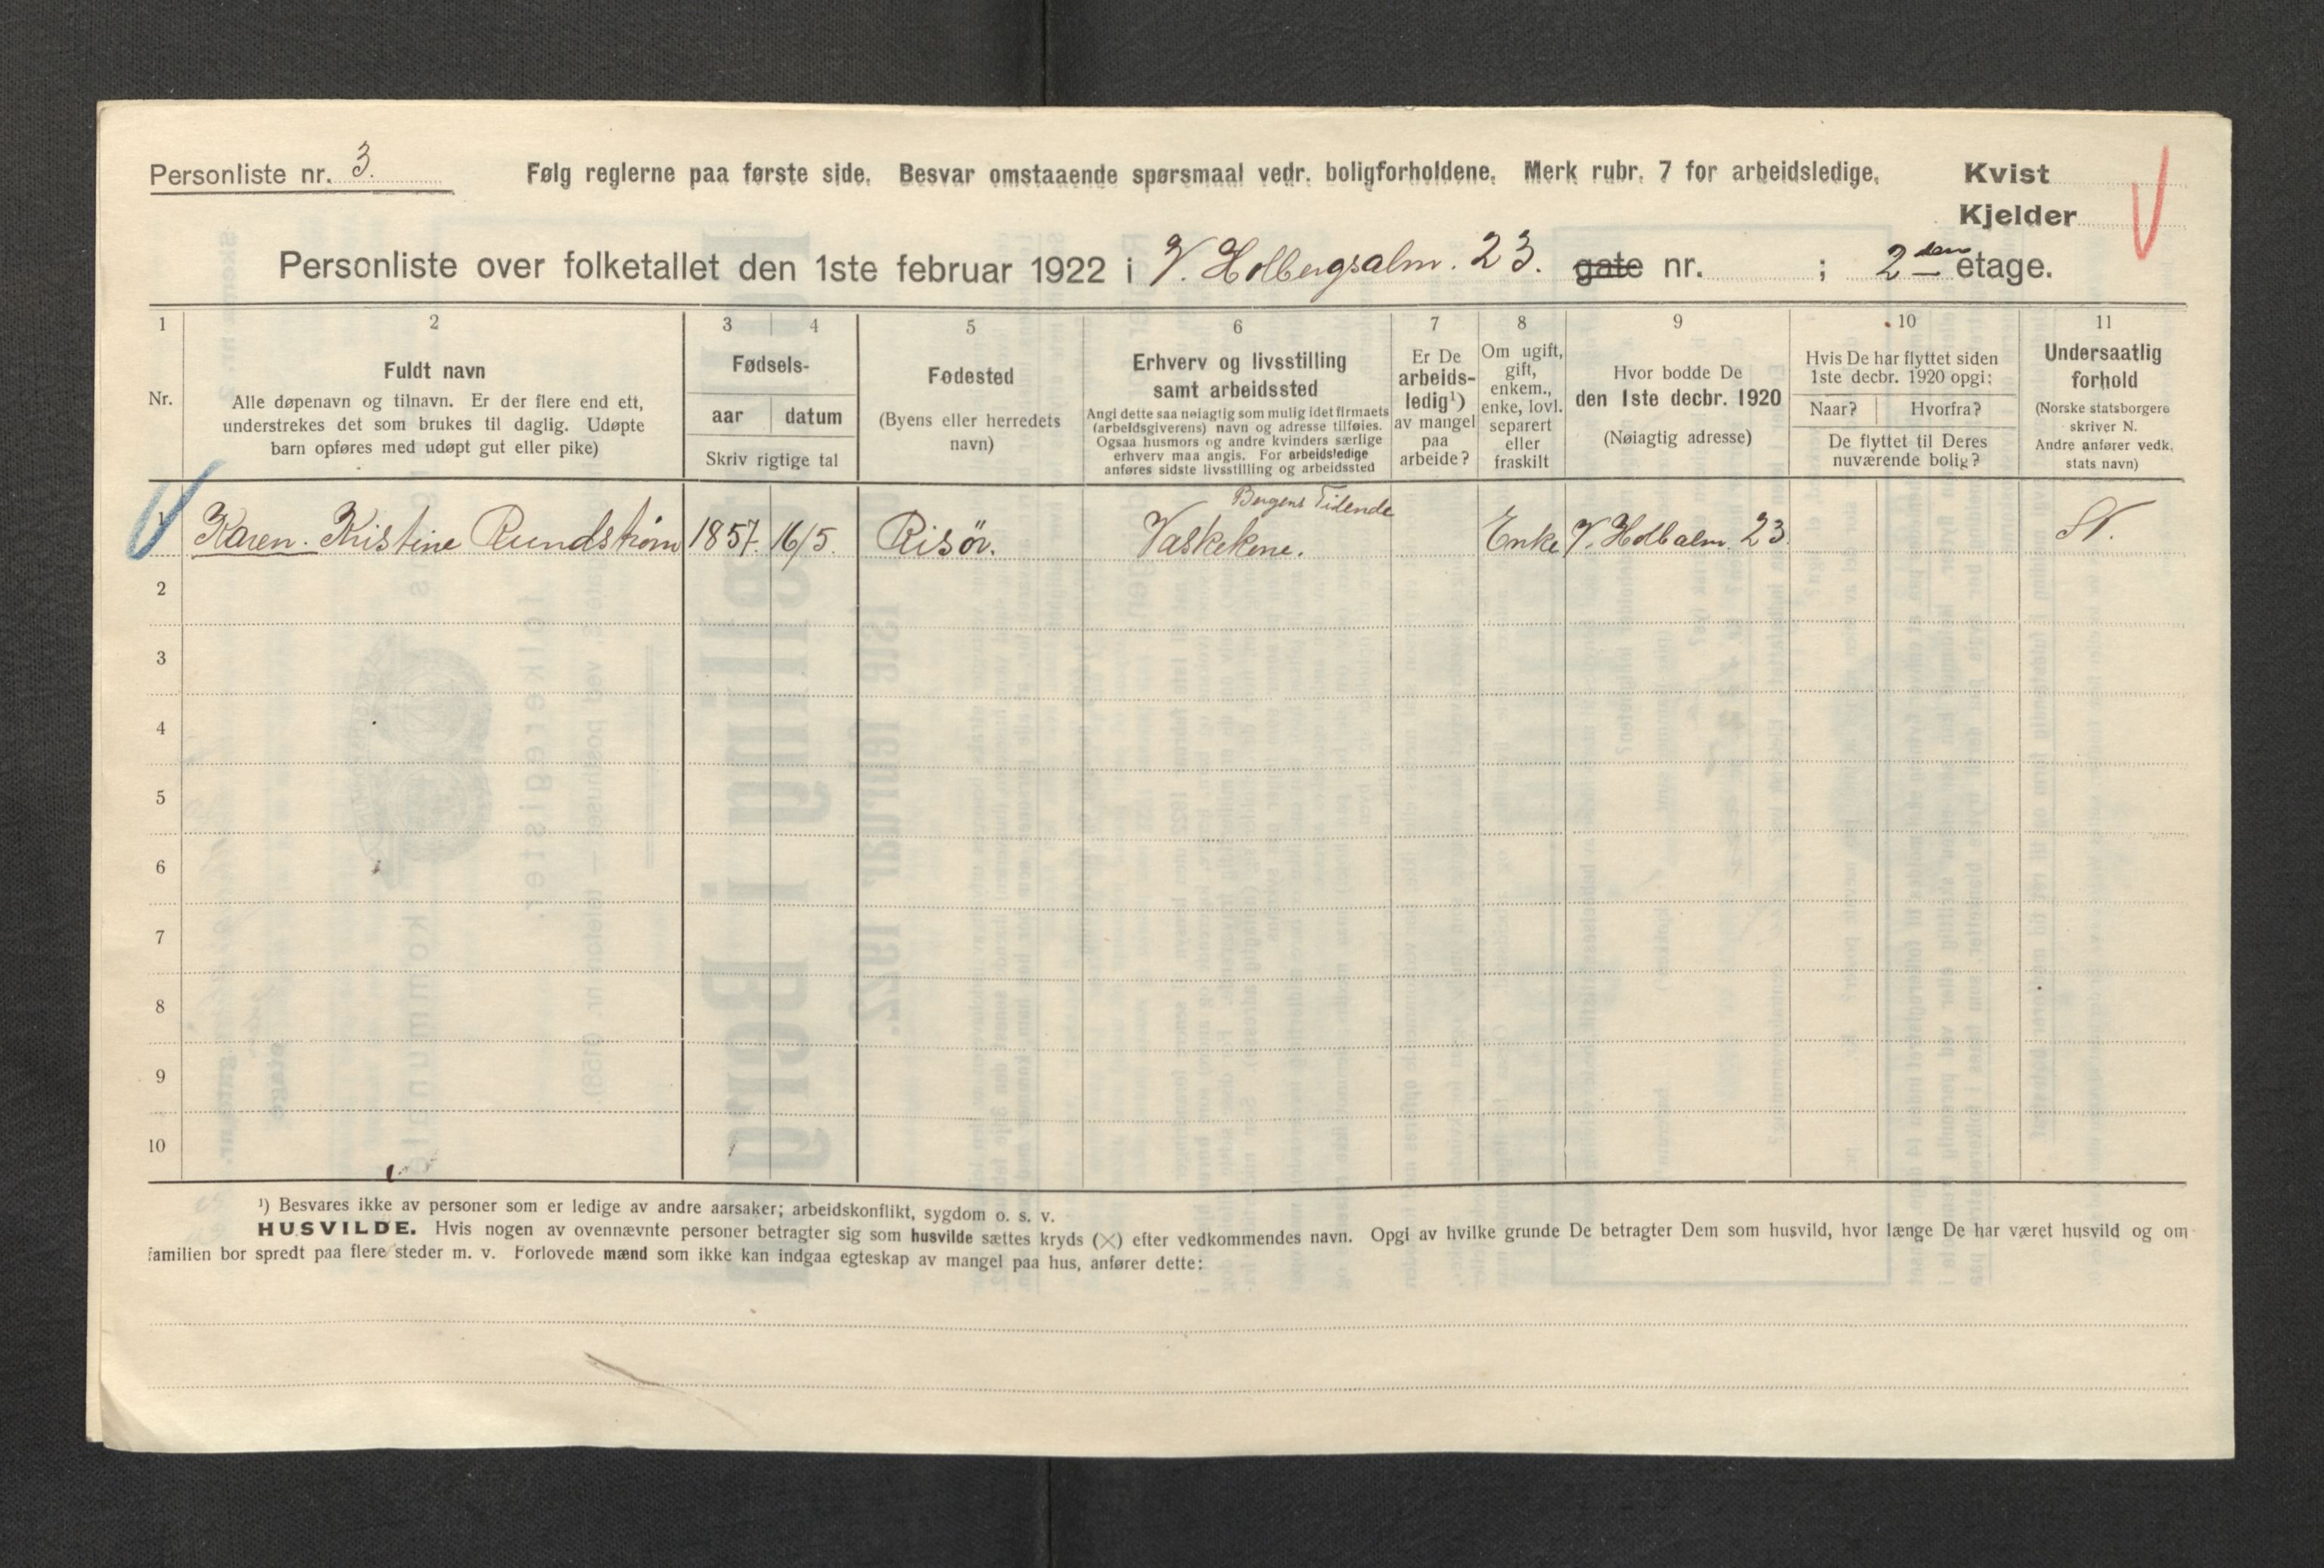 Personliste nr. 3.
Følg reglerne paa første side. Besvar omstaaende spørsmaal vedr. boligforholdene. Merk rubr. 7 for arbeidsledige.
Kvist
Kjelder
Personliste over folketallet den 1ste februar 1922 i V. Holbergsalm. 23. gate nr. ; 2den etage.
1 2 3 4 5 6 7 8 9 10 11
Nr.
Fuldt navn
Alle døpenavn og tilnavn. Er der flere end ett,
understrekes det som brukes til daglig. Udøpte
barn opføres med udøpt gut eller pike)
Fødsels-
aar datum
Skriv rigtige tal
Fødested
(Byens eller herredets
navn)
Erhverv og livsstilling
samt arbeidssted
Angi dette saa nøiagtig som mulig idet firmaets
(arbeidsgiverens) navn og adresse tilføies.
Ogsaa husmors og andre kvinders særlige
erhverv maa angis. For arbeidsledige
anføres sidste livsstilling og arbeidssted
Er De
arbeids-
ledig¹)
av mangel
paa
arbeide?
Om ugift,
gift,
enkem.,
enke, lovl.
separert
eller
fraskilt
Hvor bodde De
den 1ste decbr. 1920
(Nøiagtig adresse)
Hvis De har flyttet siden
1ste decbr. 1920 opgi:
Naar? Hvorfra?
De flyttet til Deres
nuværende bolig?
Undersaatlig
forhold
(Norske statsborgere
skriver N.
Andre anfører vedk.
stats navn)
Bergens Tidende
1 Karen Kristine Rundstrøm 1857. 16/5. Risör. Vaskekone. Enke V. Holbalm. 23 N.
2
3
4
5
6
7
8
9
10
¹) Besvares ikke av personer som er ledige av andre aarsaker; arbeidskonflikt, sygdom o. s. v.
HUSVILDE. Hvis nogen av ovennævnte personer betragter sig som husvilde sættes kryds (×) efter vedkommendes navn. Opgi av hvilke grunde De betragter Dem som husvild, hvor længe De har været husvild og om
familien bor spredt paa flere steder m. v. Forlovede mænd som ikke kan indgaa egteskap av mangel paa hus, anfører dette: